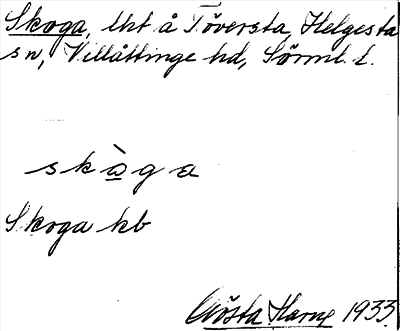 Skoga, lht å Töversta, Helgesta
sn, Villåttinge hd, Sörml. l.
skò̱ga
Skoga kb
Gösta Harne 1933.